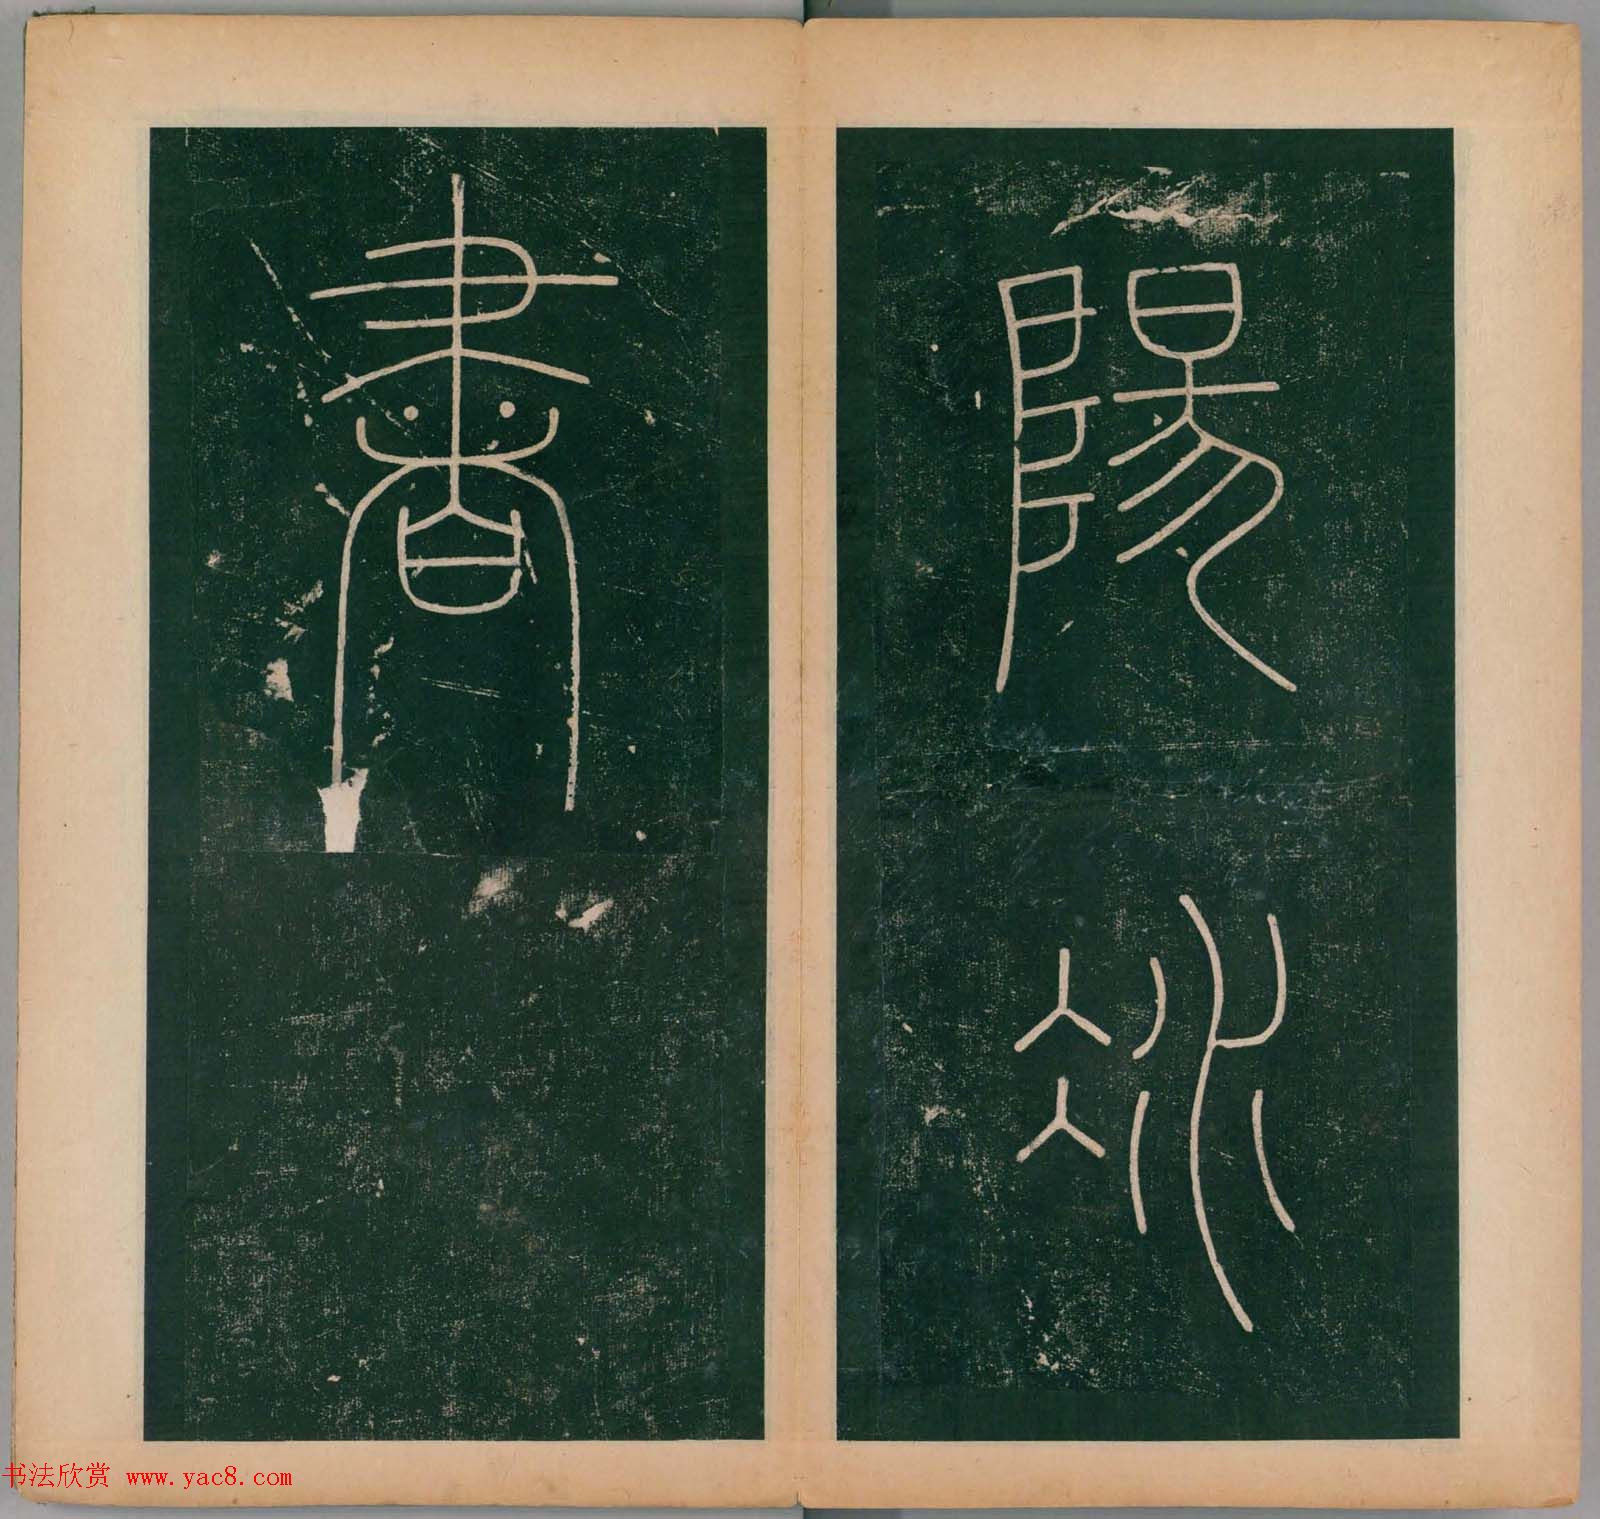 陽冰
書
书法欣赏 www.yac8.com